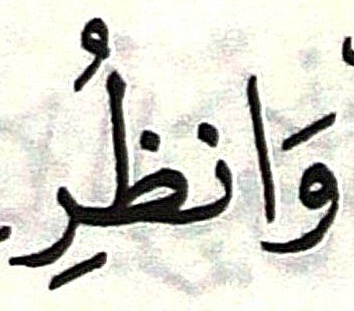 وَانظُرِ